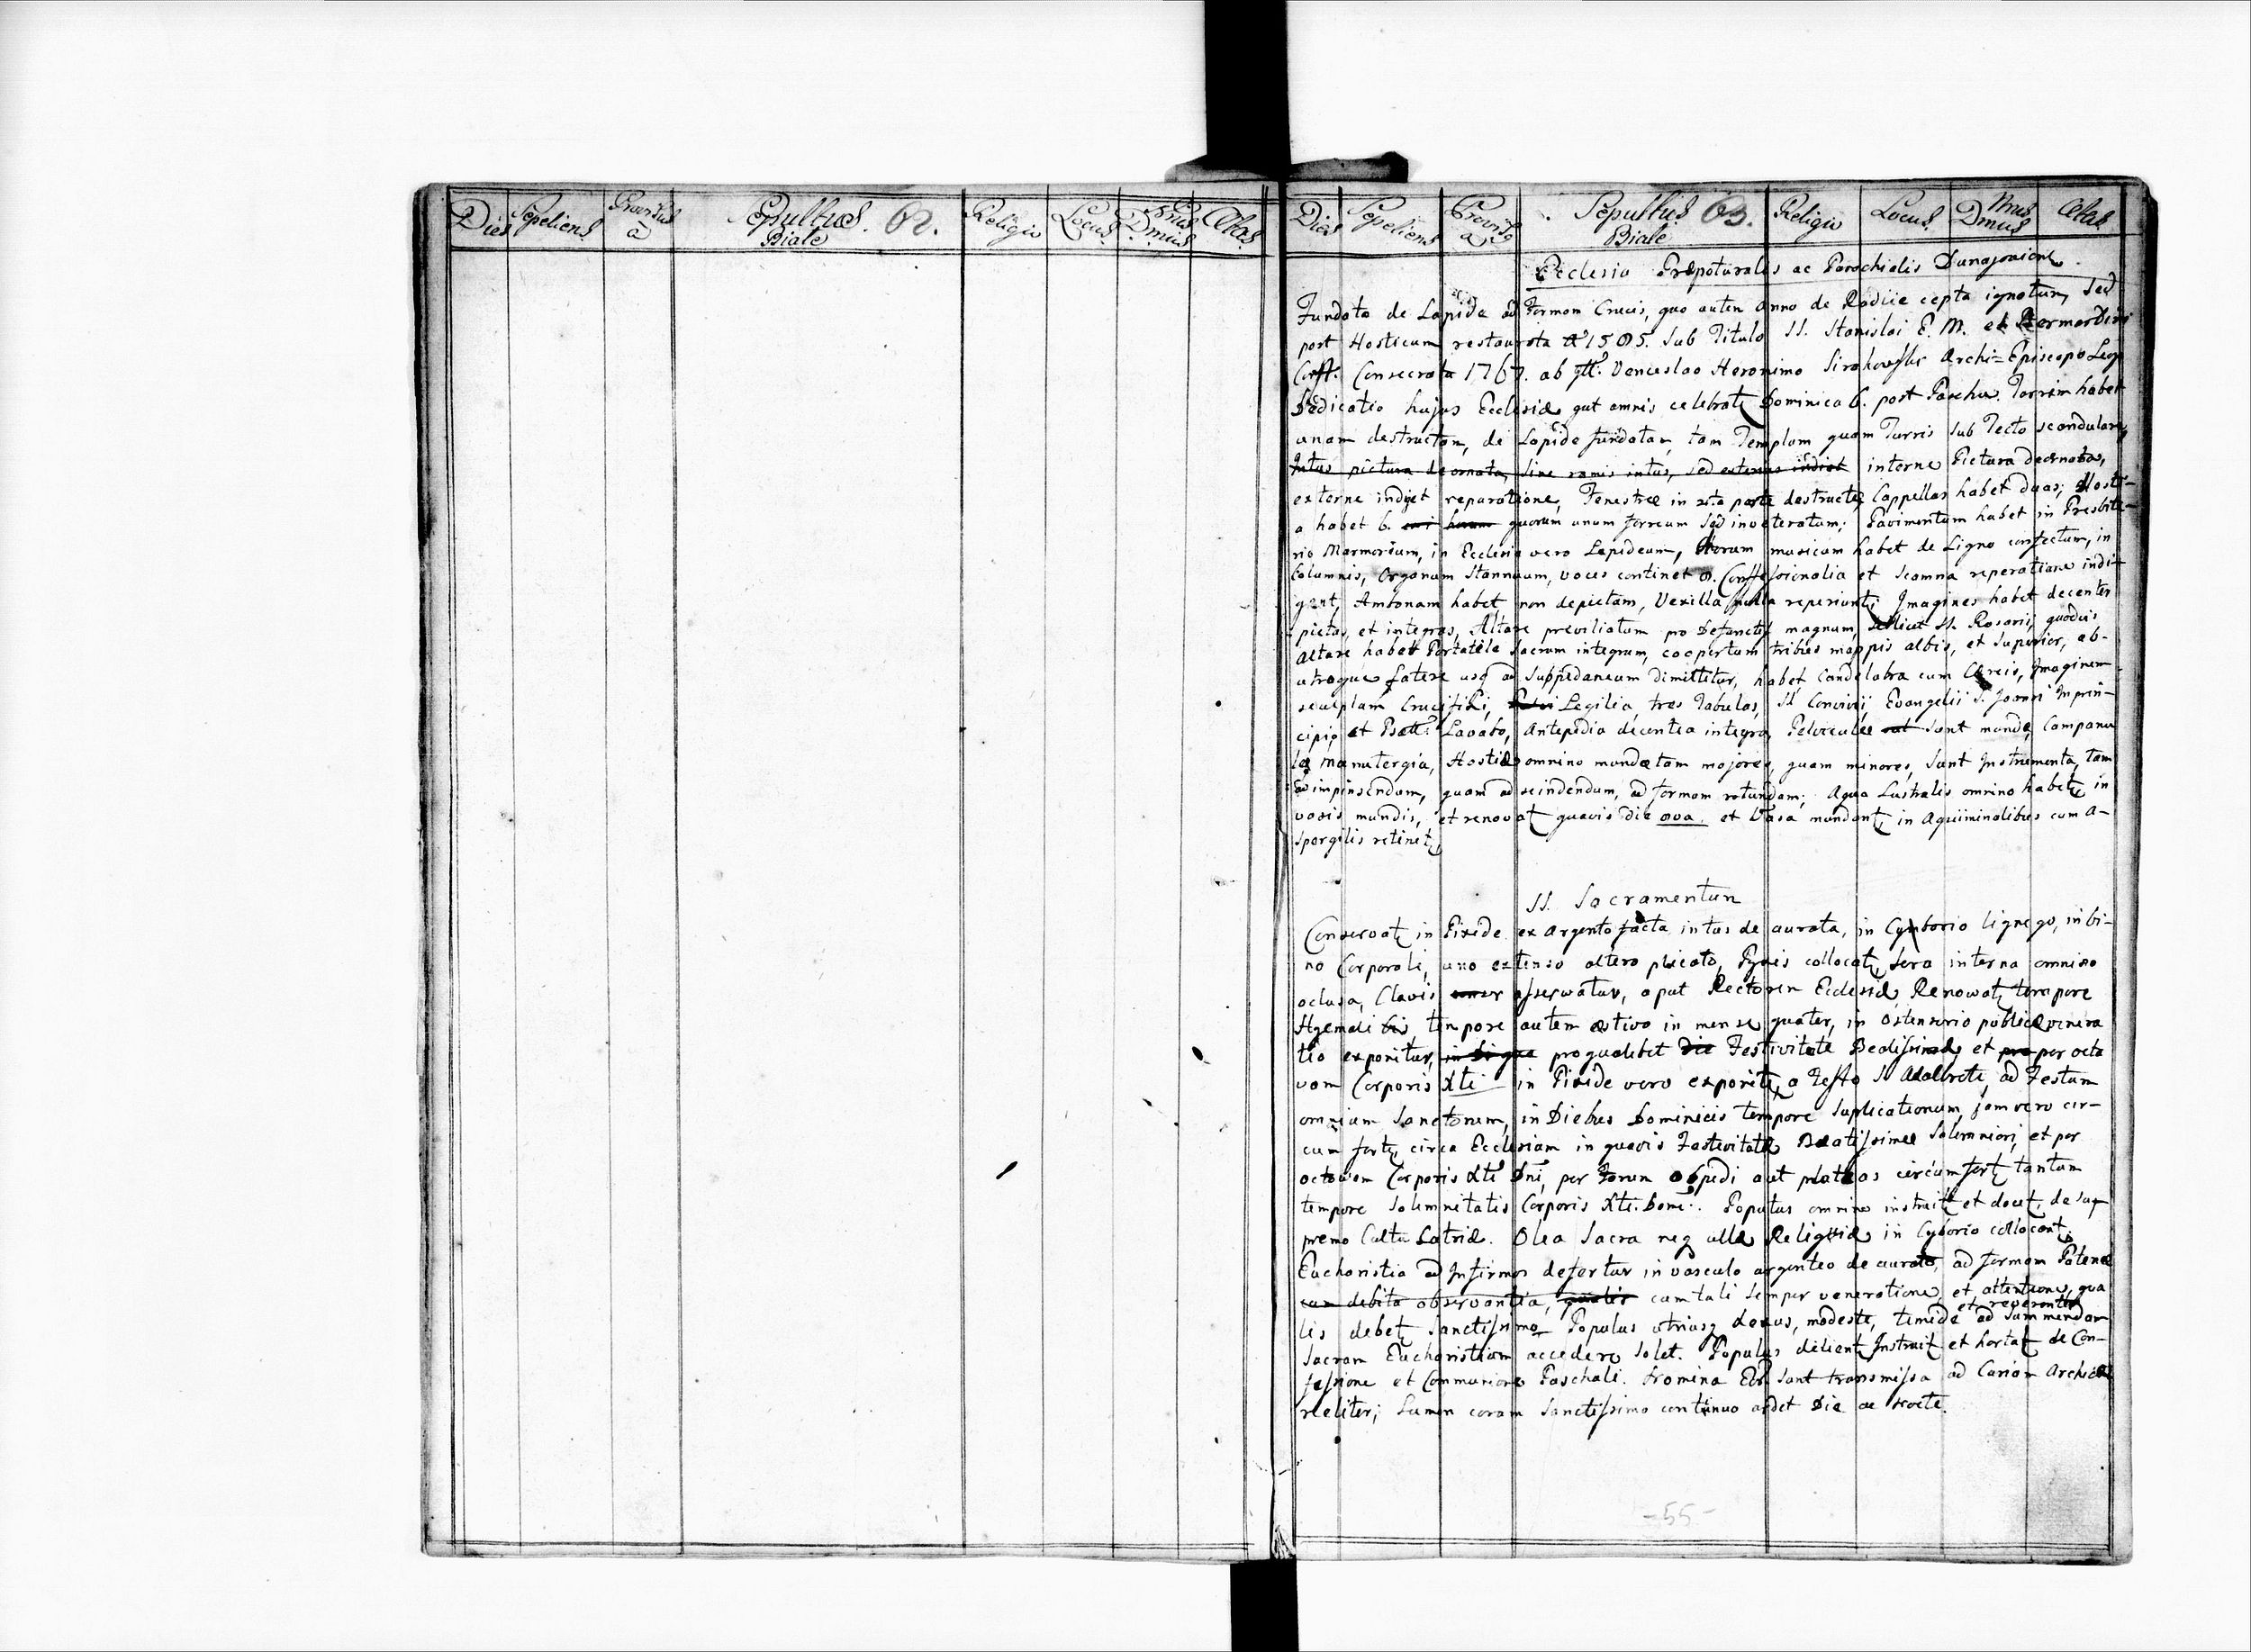 Dies Sepeliens Provisus a Sepultus 62. Biale Religio Locus Nrus Dmus Ætas
Dies Sepeliens Provisus a Sepultus 63. Biale Religio Locus Nrus Dmus Ætas
Ecclesia Præpoturalis ac Parochialis Dunajoviens.
Fundata de Lapide ad Formam Crucis, quo autem anno de Radiie cepta ignotum, sed
post Hosticum restaurata Aº 1585. sub Titulo SS. Stanislai E. M. et Bermardini
Conff. Consecrata 1767. ab Venceslao Heronimo Sirakowski Archi=Episcopo Leop
Dedicatio hujus Ecclesiæ celebrat Dominica 6. post Pascha. Turrim habet
unam destructam, de Lapide fundatam, tam Templum quam Turris sub Tecto scandulari,
Intus pictura deornata, sine ramis intus, sed externe indiet interne Pictura deornata,
externe indiget reparatione, Fenestræ in parte destructe, Cappellas habet duas; Hosti-
a habet 6. quorum unum ferreum sed inveteratum; Pavimentum habet in Presbite-
rio Marmorium, in Ecclesia vero Lapideum, Horum musicum habet de Ligno confectum, in
Columnis, Organum Stannuum, voces continet 8. Conffessionalia et Scamna reperatione indi-
gent, Ambonam habet non depictam, Vexilla nulla reperiunt; Imagines habet decenter
pictas, et integras, Altare previliatum pro Defunctis magnum, scilicet SS. Rosarii, quodvis
altare habet Portatile sacrum integrum, coopertum tribus mappis albis, et superior, ab-
utroque latere usq ad Suppedaneum dimittitur, habet Candelabra cum Cereis, Imaginem
sculptam Crucifixi, Legilia tres Tabulas, SS Convivii, Evangelii S. Joanni Inprin-
cipio et Psall: Lavabo, Antepedia decentea integra, Pelviculæ sunt mundæ, Campanu
læ manutergia, Hostiæ omnino mundæ tam majores, quam minores, sunt Instrumenta, tam
ad impinsendum, quam ad scindendum, ad formam rotundam; Aqua Lustralis omnino habet in
vasis mundis, et renovat quavis die et Vasa mundant, in Aquiminalibus cum a-
spergilis retinet,
SS. Sacramentum
Conservat in Pixide ex Argento facta intus de aurata, in Cymborio ligneo, in bi-
no Corporali, uno extenso altero plicato, Pyxis collocat, sera interna omnino
oclusa, Clavis asservatur, aput Rectorem Ecclesiæ, Renowat tempore
Hyemali bis, tempore autem æstivo in mense quater, in Ostensorio publicæ venera
tio exponitur, in Digne proqualibet Die Festivitate Beatissimæ, et pro per octa
vam Corporis Xti in Pixide vero exponit, a Festo S Adalberte, ad Festum
omnium Sanctorum, in Diebus Dominicis tempore Suplicationum, jam vero cir-
cum fert, circa Ecclesiam in quavis Festivitate Beatissimæ Solemniori, et per
octavam Corporis Xti Dni, per Forum opidi aut plateas circumfert tantum
tempore Solemnitatis Corporis Xti: Dom: Populus omnino instruit et docet, de sup
premo Cultu Latriæ. Olea Sacra neq ullæ Reliquiæ in Cyborio collocant,
Eucharistia ad Infirmos defertur in vasculo argenteo de aurato, ad formam Patenæ
cum debita observantia, qualis cum tali semper veneratione, et attentione, qua
lis debet, Sanctissimo Populus utriusq sexus, modeste, timide et reverenter ad summendam
Sacram Eucharistiam accedere solet. Populus Instruit et hortat de Con-
fessione et Communione Paschali. Nomina Eor sunt transmissa ad Cariam Archidia
releliter; Lumen coram Sanctissimo continuo ardet Die ac nocte.
-55-